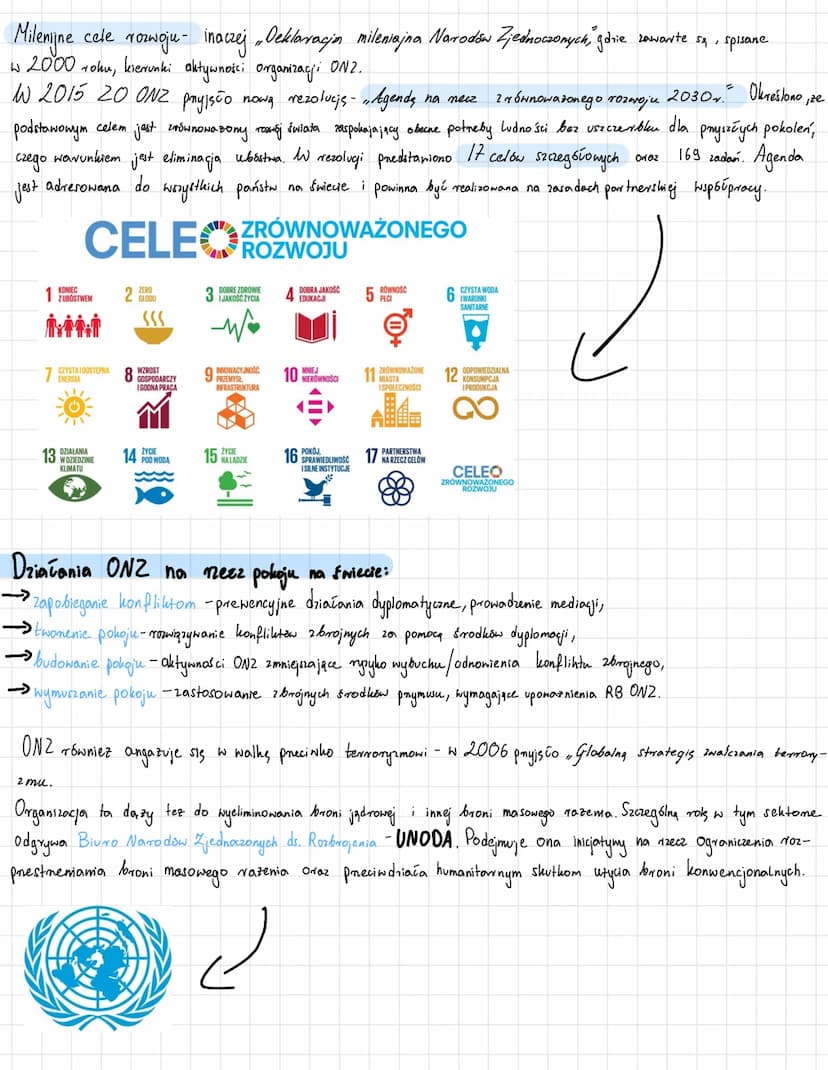 Milenijne cele rozwoju - inaczej „Deklaracja milenijna Narodów Zjednoczonych," gdzie zawarte są, spisane
w 2000 roku, kierunki aktywności organizacji ONZ.
W 2015 ZO ONZ przyjęło nową rezolucję - „Agendę na rzecz zrównoważonego rozwoju 2030r." Określono, że
podstawowym celem jest zrównoważony rozwój świata zaspokajający obecne potrzeby ludności bez uszczerbku dla przyszłych pokoleń,
czego warunkiem jest eliminacja ubóstwa. W rezolucji przedstawiono 17 celów szczegółowych oraz 169 zadań. Agenda
jest adresowana do wszystkich państw na świecie i powinna być realizowana na zasadach partnerskiej współpracy.
CELE ZRÓWNOWAŻONEGO
ROZWOJU
1 KONIEC
Z UBÓSTWEM
2 ZERO
GŁODU
3 DOBRE ZDROWIE
I JAKOŚĆ ŻYCIA
4 DOBRA JAKOŚĆ
EDUKACJI
5 RÓWNOŚĆ
PŁCI
6 CZYSTA WODA
I WARUNKI
SANITARNE
7 CZYSTA I DOSTĘPNA
ENERGIA
8 WZROST
GOSPODARCZY
I GODNA PRACA
9 INNOWACYJNOŚĆ,
PRZEMYSŁ,
INFRASTRUKTURA
10 MNIEJ
NIERÓWNOŚCI
11 ZRÓWNOWAŻONE
MIASTA
I SPOŁECZNOŚCI
12 ODPOWIEDZIALNA
KONSUMPCJA
I PRODUKCJA
13 DZIAŁANIA
W DZIEDZINIE
KLIMATU
14 ŻYCIE
POD WODĄ
15 ŻYCIE
NA LĄDZIE
16 POKÓJ,
SPRAWIEDLIWOŚĆ
I SILNE INSTYTUCJE
17 PARTNERSTWA
NA RZECZ CELÓW
CELE
ZRÓWNOWAŻONEGO
ROZWOJU
Działania ONZ na rzecz pokoju na świecie:
→ zapobieganie konfliktom - prewencyjne działania dyplomatyczne, prowadzenie mediacji,
→ tworzenie pokoju - rozwiązywanie konfliktów zbrojnych za pomocą środków dyplomacji,
→ budowanie pokoju - aktywności ONZ zmniejszające ryzyko wybuchu/odnowienia konfliktu zbrojnego,
→ wymuszanie pokoju - zastosowanie zbrojnych środków przymusu, wymagające upoważnienia RB ONZ.
ONZ również angażuje się w walkę przeciwko terroryzmowi - w 2006 przyjęto „Globalną strategię zwalczania terrory-
zmu.
Organizacja ta dąży też do wyeliminowania broni jądrowej i innej broni masowego rażenia. Szczególną rolę w tym sektorze
odgrywa Biuro Narodów Zjednoczonych ds. Rozbrojenia - UNODA. Podejmuje ona inicjatywy na rzecz ograniczenia roz-
przestrzeniania broni masowego rażenia oraz przeciwdziała humanitarnym skutkom użycia broni konwencjonalnych.